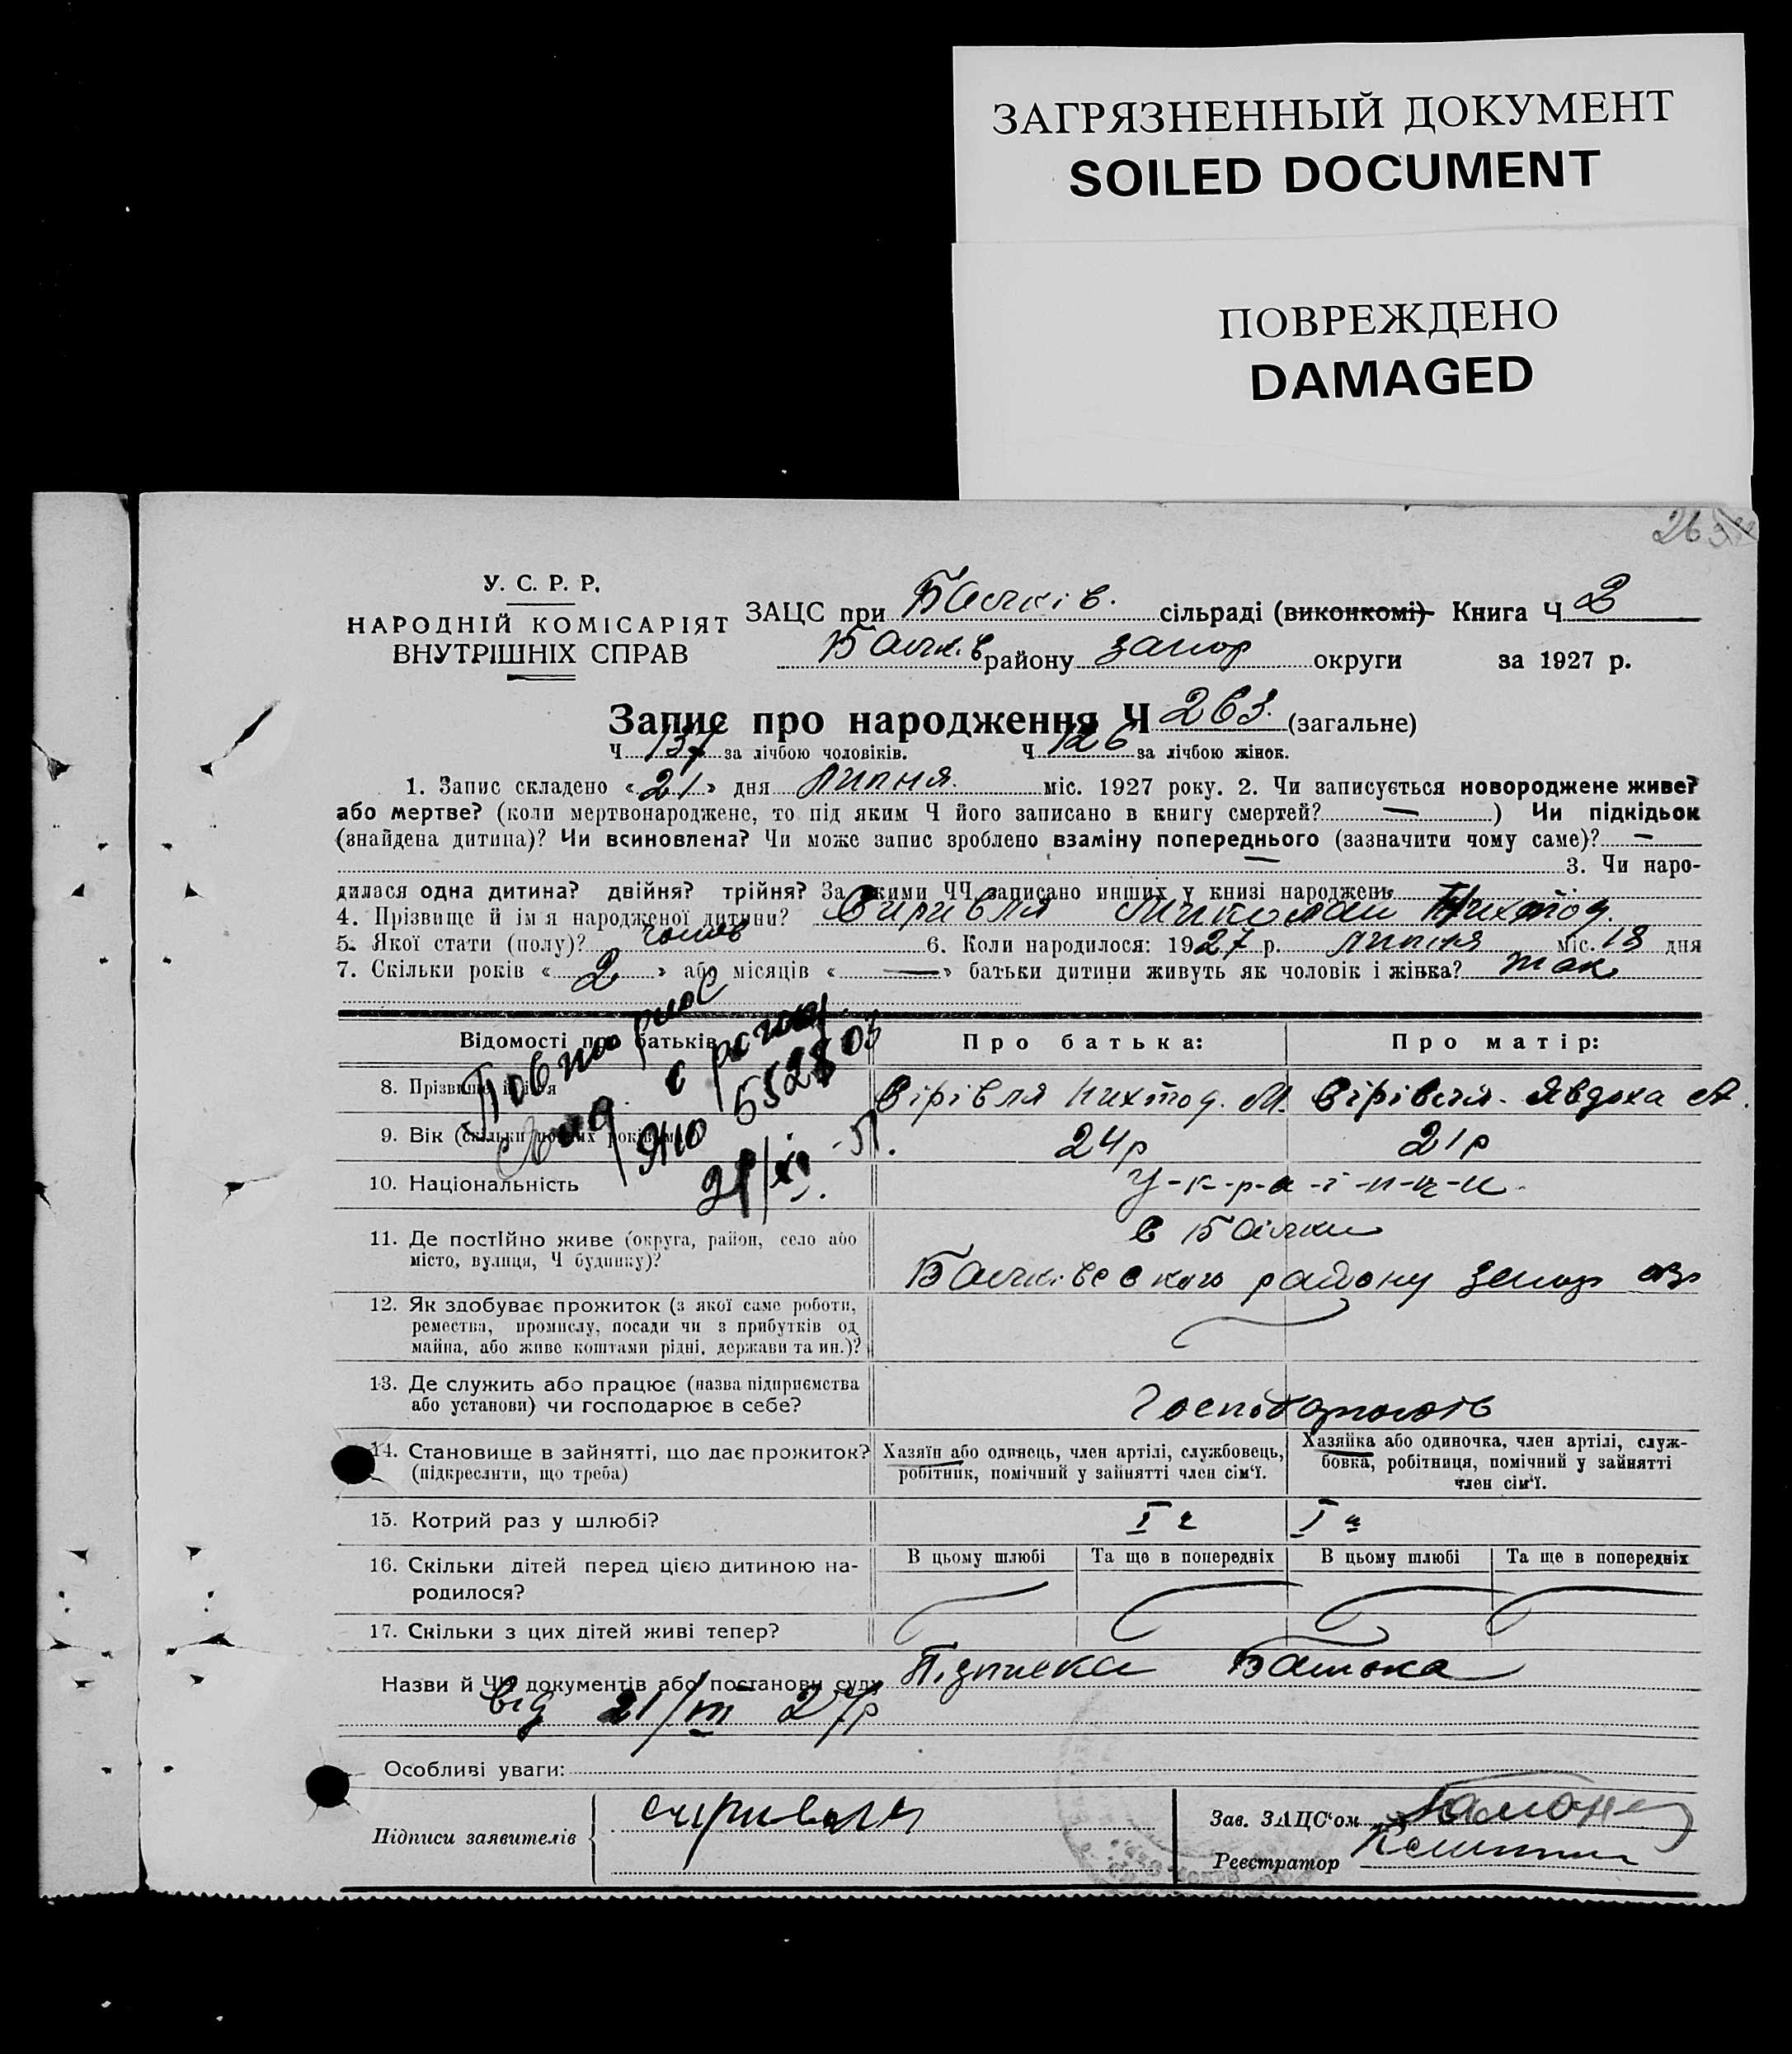 ЗАГРЯЗНЕННЫЙ ДОКУМЕНТ
SOILED DOCUMENT
ПОВРЕЖДЕНО
DAMAGED
263
У. С. Р. Р.
НАРОДНІЙ КОМІСАРІЯТ
ВНУТРІШНІХ СПРАВ
ЗАЦС при Балків. сільраді (виконкомі) Книга Ч 2
Балк.в району запор округи за 1927 р.
Запис про народження Ч 263. (загальне)
Ч 137 за лічбою чоловіків. Ч 126 за лічбою жінок.
1. Запис складено «21» дня липня. міс. 1927 року. 2. Чи записується новороджене живе?
або мертве? (коли мертвонароджене, то під яким Ч його записано в книгу смертей? —) Чи підкідьок
(знайдена дитина)? Чи всиновлена? Чи може запис зроблено взаміну попереднього (зазначити чому саме)? —
— 3. Чи наро-
дилася одна дитина? двійня? трійня? За якими ЧЧ записано инших у книзі народжень
4. Прізвище й ім'я народженої дитини? Сирівля Миколай Нихтод.
5. Якої стати (полу)? чолов 6. Коли народилося: 1927 р. липня міс. 18 дня
7. Скільки років «2» або місяців «—» батьки дитини живуть як чоловік і жінка? так
Відомості про батьків
Про батька:
Про матір:
Повторное
с
ЯЮ 552803
8. Прізвище і ім'я Сірівля Нихтод. М. Сірівля. Явдоха А.
9. Вік (скільки повних років має) 24р 21р
10. Національність У-к-р-а-ї-н-ц-и
11. Де постійно живе (округа, район, село або
місто, вулиця, Ч будинку)?
в Балки
Балківського району запор окр
12. Як здобуває прожиток (з якої саме роботи,
ремества, промислу, посади чи з прибутків од
майна, або живе коштами рідні, держави та ин.)?
13. Де служить або працює (назва підприємства
або установи) чи господарює в себе?
Господарюють
14. Становище в зайнятті, що дає прожиток?
(підкреслити, що треба)
Хазяїн або одинець, член артілі, службовець,
робітник, помічний у зайнятті член сім'ї.
Хазяйка або одиночка, член артілі, служ-
бовка, робітниця, помічний у зайнятті
член сім'ї.
15. Котрий раз у шлюбі? I й I й
16. Скільки дітей перед цією дитиною на-
родилося?
В цьому шлюбі Та ще в попередніх В цьому шлюбі Та ще в попередніх
17. Скільки з цих дітей живі тепер?
Назви й ЧЧ документів або постанови суду Підписка Батька
від 21/VII 27р
Особливі уваги:
Підписи заявителів Сиривля
Зав. ЗАЦС'ом
Реєстратор